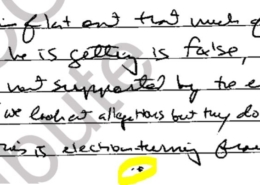 flat out that much of
he is getting is false,
not supported by the e
we look at allegations but they do
this is election turning